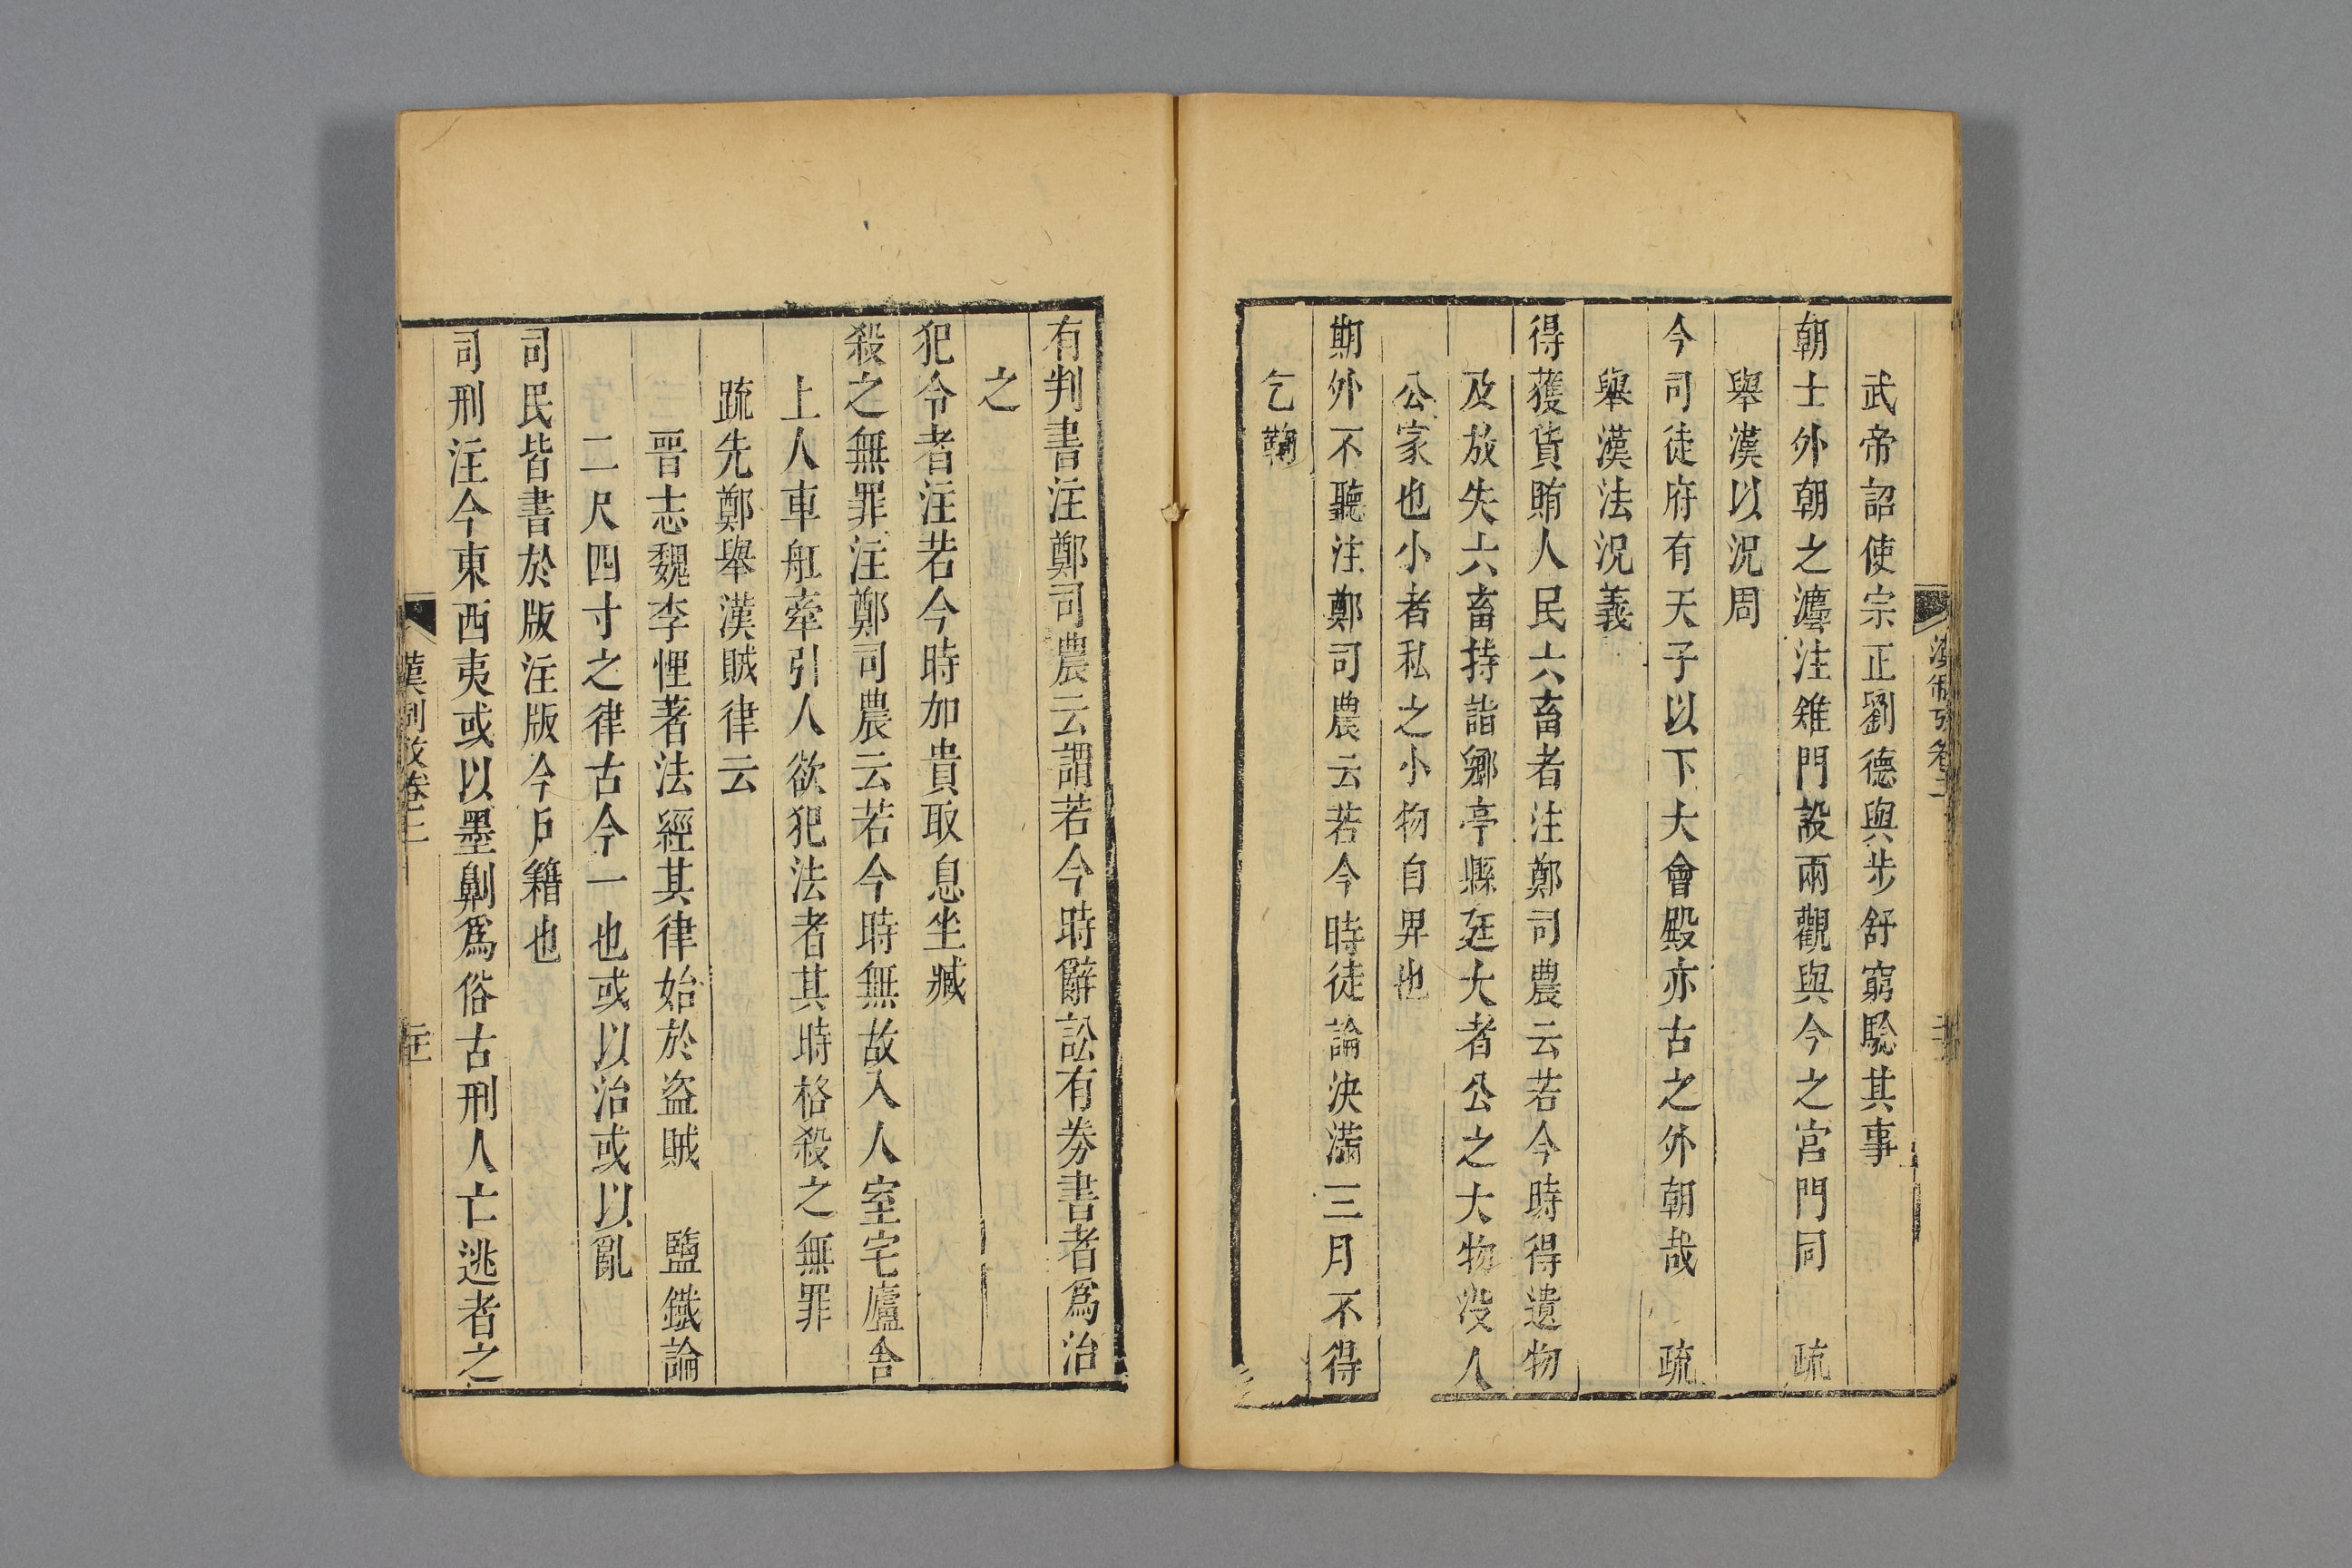 武帝詔使宗正劉德與步舒窮驗其事
朝士外朝之灋注雉門設兩觀與今之宮門同　疏
舉漢以況周
今司徒府有天子以下大會殿亦古之外朝哉　疏
舉漢法況義
得獲貨賄人民六畜者注鄭司農云若今時得遺物
及放失六畜持詣鄉亭縣廷大者公之大物沒入
公家也小者私之小物自畀也
期外不聽注鄭司農云若今時徒論決滿三月不得
乞鞫
有判書注鄭司農云謂若今時辭訟有券書者爲治
之
犯令者注若今時加貴取息坐臧
殺之無罪注鄭司農云若今時無故入人室宅廬舍
上人車舡牽引人欲犯法者其時格殺之無罪
疏先鄭舉漢賊律云
晉志魏李悝著法經其律始於盜賊　鹽鐵論
二尺四寸之律古今一也或以治或以亂
司民皆書於版注版今戶籍也
司刑注今東西夷或以墨劓爲俗古刑人亡逃者之
漢制攷卷二